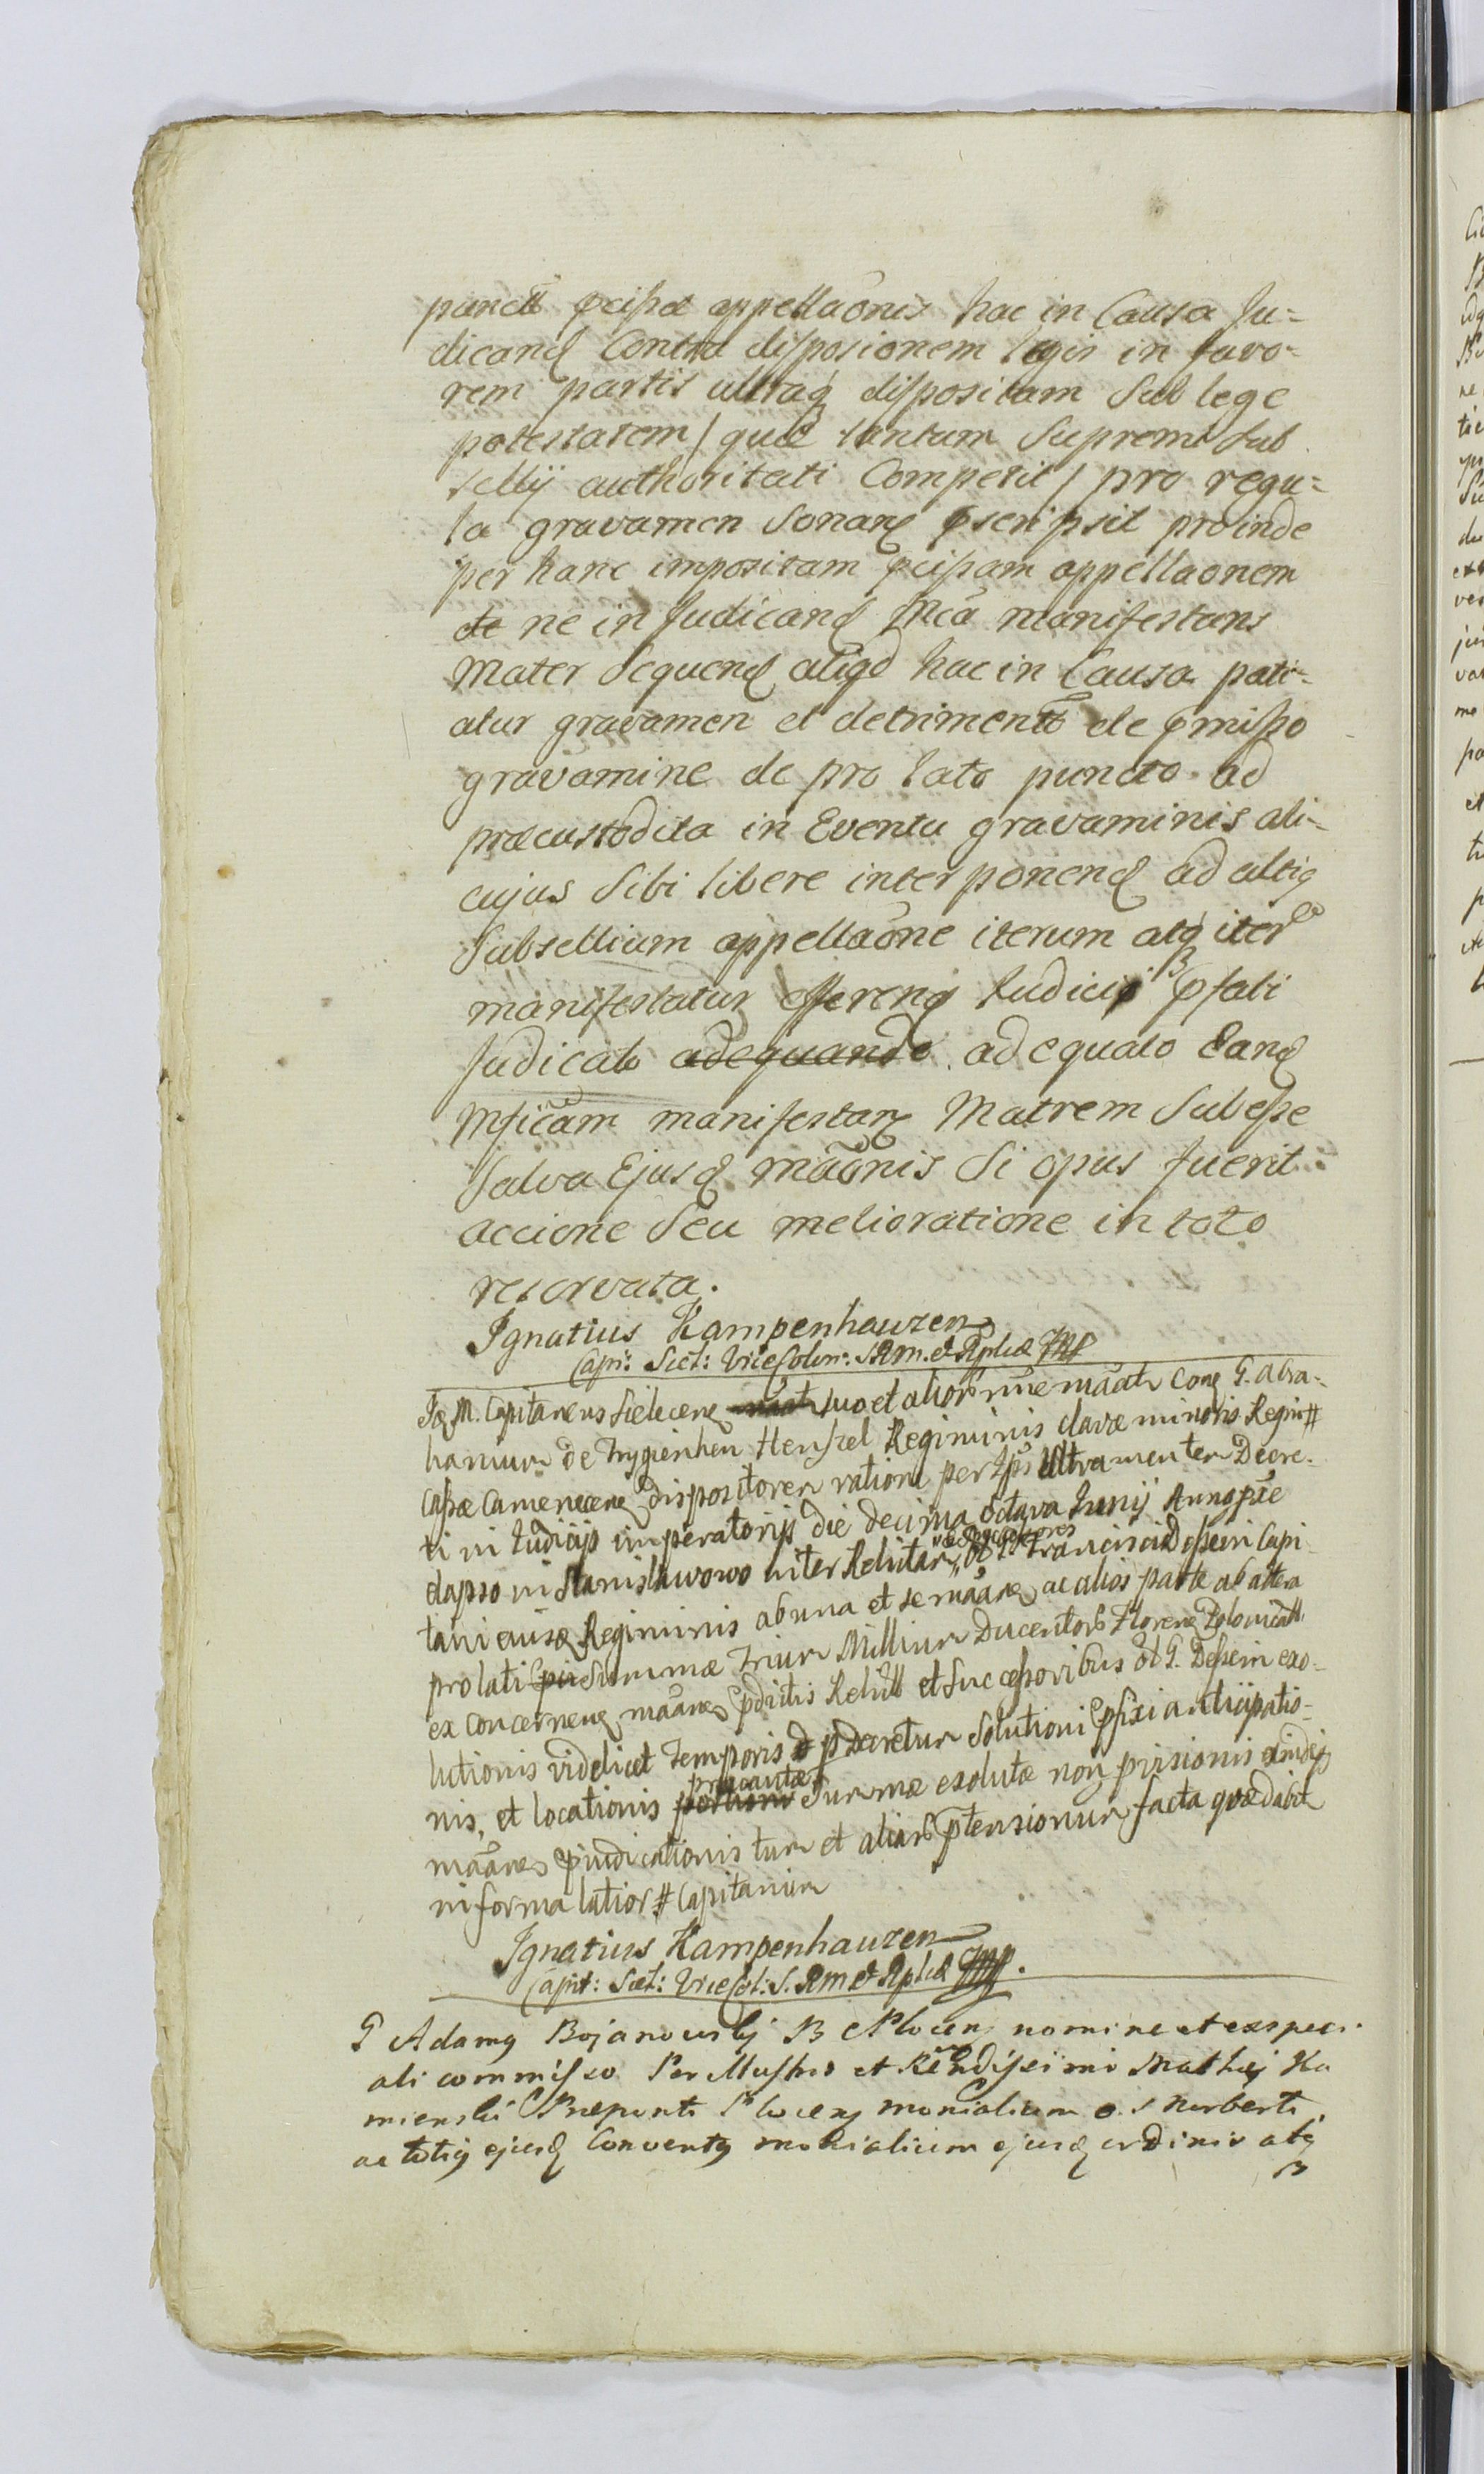 punctū pcipsæ appellaõnis hac in Causa Ju=
dicand Contra disposionem legis in favo=
rem partis ultraq dispositam Sub lege
potestatem / quæ tantum Supremi Sub
sellij authoritati Competit / pro regu=
la gravamen Sonans pscripsit proinde
per hanc impositam pcipsam appellaonem
de ne in Judicand manifestans
Mater Sequend aliqd hac in Causa pati=
atur gravamen et detrimentū de pmisso
gravamine de pro lato puncto ad
præcustodita in Eventu gravaminis ali=
cujus Sibi libere interponend ad altiq
Subsellium appellaõne iterum atq iterū
manifestatur offerens Judicio pfati
Judicato adequando adequato Eand
Mficam manifestan Matrem Subesse
Salva Ejusd mãonis Si opus fuerit
accione Seu melioratione in toto
reservata.
Ignatius Kampenhauzen
Capi: Sict: ViceColon: S.Rm. et Rplicæ Mp
M. Capitaneus suo et alior nne mãat Con G. Abra=
hamum de Trygienhen Henszel Regiminis clavæ minoris Regni #
Cassæ Camenecen dispositorem ratione per Ultramenter Decre=
ti in Judicijs imperatorijs die decima octava Junij Anno pñe
elapso in Stanislawowo inter Relictam Francisci Dessein Capi
tani eiusd Regiminis ab una et se mãane ac alios parte ab altera
prolati Summæ Trium Millium Ducentor Floren Polonicall
ex concernen mãane pdictis Relictæ et Successoribus ol G. Dessein exo=
lutionis videlicet Temporis p Decretum Solutioni pfixi anticipatio=
nis, et locationis portionis præcautæ Summæ exolutæ non provisionis exindeq
mãane pjudicationis tum et aliar ptensionum facta quæ dabit
in forma latior # Capitanium
Ignatius Kampenhauzen
Capit: Sict: ViceCol: S. Rm et Rplicæ Mp.
G Adamq Bojanowskj B Plocen nomine et ex speci
ali commisso Per Illustris et Rendissimi Mathej Ka
mienski Præpositi Plocen monialium O. S Norberti
ac totiq ejusd Conventq monialium ejusd ordinis atq